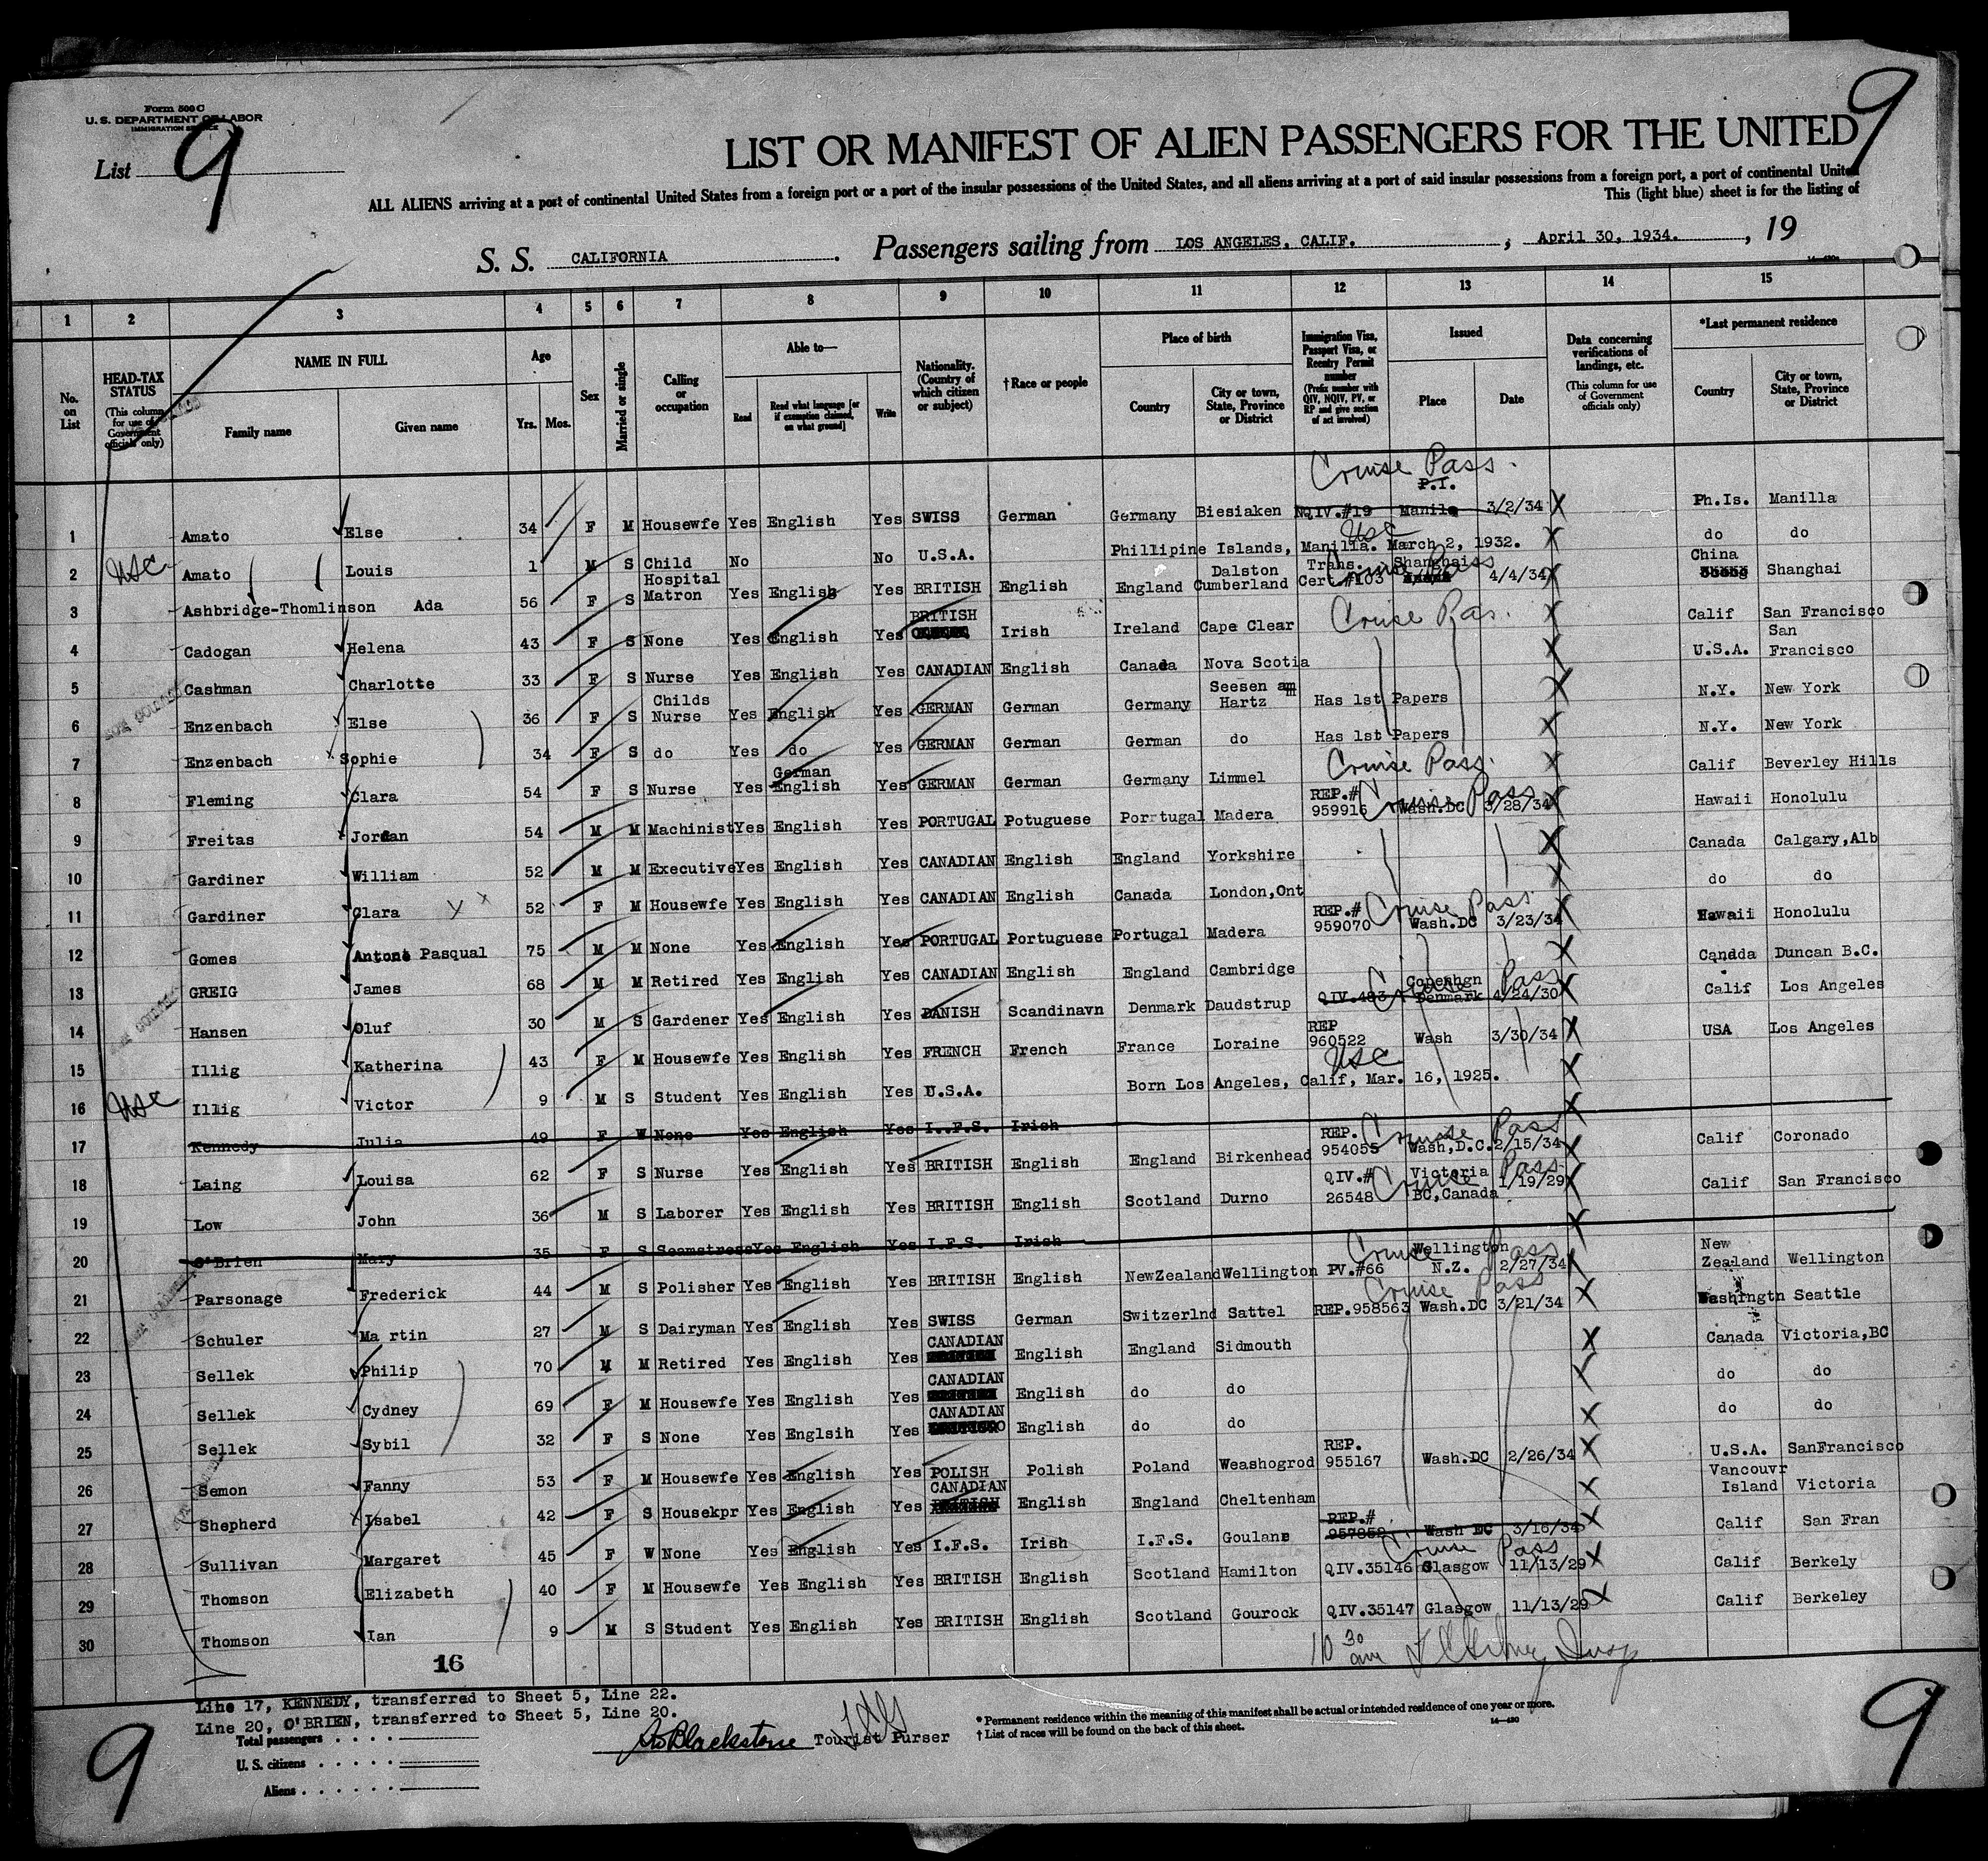 Form 500 C
U. S. DEPARTMENT OF LABOR
IMMIGRATION SERVICE
List 9
9
LIST OR MANIFEST OF ALIEN PASSENGERS FOR THE UNITED
ALL ALIENS arriving at a port of continental United States from a foreign port or a port of the insular possessions of the United States, and all aliens arriving at a port of said insular possessions from a foreign port, a port of continental United
This (light blue) sheet is for the listing of
S. S. CALIFORNIA. Passengers sailing from LOS ANGELES, CALIF. , April 30, 1934. , 19
1 2 3 4 5 6 7 8 9 10 11 12 13 14 15
No. on List
HEAD-TAX STATUS
(This column for use of Government officials only)
NAME IN FULL
Family name
Given name
Age
Yrs. Mos.
Sex
Married or single
Calling or occupation
Able to—
Read
Read what language [or if exemption claimed, on what ground]
Write
Nationality. (Country of which citizen or subject)
†Race or people
Place of birth
Country
City or town, State, Province or District
Immigration Visa, Passport Visa, or Reentry Permit number
(Prefix number with QIV, NQIV, PV, or RP and give section of act involved)
Issued
Place
Date
Data concerning verifications of landings, etc.
(This column for use of Government officials only)
*Last permanent residence
Country
City or town, State, Province or District
Cruise Pass.
P.I.
1 Amato Else 34 F M Housewfe Yes English Yes SWISS German Germany Biesiaken NQIV.#19 Manila 3/2/34 X Ph.Is. Manilla
USC
2 USC Amato Louis 1 M S Child No No U.S.A. Phillipine Islands, Manilla. March 2, 1932. X do do
3 Ashbridge-Thomlinson Ada 56 F S Hospital Matron Yes English Yes BRITISH English England Dalston Cumberland Trans. Cert.#103 Shanghais 4/4/34 X China Shanghai
Cruise Pass
4 Cadogan Helena 43 F S None Yes English Yes BRITISH Irish Ireland Cape Clear Cruise Pas. X Calif San Francisco
5 Cashman Charlotte 33 F S Nurse Yes English Yes CANADIAN English Canada Nova Scotia X U.S.A. San Francisco
6 Enzenbach Else 36 F S Childs Nurse Yes English Yes GERMAN German Germany Seesen am Hartz Has 1st Papers X N.Y. New York
7 Enzenbach Sophie 34 F S do Yes do Yes GERMAN German German do Has 1st Papers X N.Y. New York
8 Fleming Clara 54 F S Nurse Yes German English Yes GERMAN German Germany Limmel Cruise Pass. X Calif Beverley Hills
9 Freitas Jordan 54 M M Machinist Yes English Yes PORTUGAL Potuguese Portugal Madera REP.# 959916 Wash.DC 3/28/34 Cruise Pass X Hawaii Honolulu
10 Gardiner William 52 M M Executive Yes English Yes CANADIAN English England Yorkshire X Canada Calgary,Alb
11 Gardiner Clara 52 F M Housewfe Yes English Yes CANADIAN English Canada London,Ont X do do
12 Gomes Antone Pasqual 75 M M None Yes English Yes PORTUGAL Portuguese Portugal Madera REP.# 959070 Wash.DC 3/23/34 Cruise Pass X Hawaii Honolulu
13 GREIG James 68 M M Retired Yes English Yes CANADIAN English England Cambridge X Canada Duncan B.C.
14 Hansen Oluf 30 M S Gardener Yes English Yes DANISH Scandinavn Denmark Daudstrup QIV.483 Copenhgn Denmark 4/24/30 Cruise Pass X Calif Los Angeles
15 Illig Katherina 43 F M Housewfe Yes English Yes FRENCH French France Loraine REP 960522 Wash 3/30/34 X USA Los Angeles
USC
16 USC Illig Victor 9 M S Student Yes English Yes U.S.A. Born Los Angeles, Calif, Mar. 16, 1925. X
17 Kennedy Julia 49 F W None Yes English Yes I.F.S. Irish X
18 Laing Louisa 62 F S Nurse Yes English Yes BRITISH English England Birkenhead REP. 954055 Wash,D.C. 2/15/34 Cruise Pass X Calif Coronado
19 Low John 36 M S Laborer Yes English Yes BRITISH English Scotland Durno QIV.# 26548 Victoria BC,Canada 1/19/29 Cruise Pass X Calif San Francisco
20 O'Brien Mary 35 F S Seamstress Yes English Yes I.F.S. Irish X
21 Parsonage Frederick 44 M S Polisher Yes English Yes BRITISH English NewZealand Wellington PV.#66 Wellington N.Z. 2/27/34 Cruise Pass X New Zealand Wellington
22 Schuler Martin 27 M S Dairyman Yes English Yes SWISS German Switzerlnd Sattel REP.958563 Wash.DC 3/21/34 Cruise Pass X Washingtn Seattle
23 Sellek Philip 70 M M Retired Yes English Yes CANADIAN English England Sidmouth X Canada Victoria,BC
24 Sellek Cydney 69 F M Housewfe Yes English Yes CANADIAN English do do do do
25 Sellek Sybil 32 F S None Yes Englsih Yes CANADIAN English do do X do do
26 Semon Fanny 53 F M Housewfe Yes English Yes POLISH Polish Poland Weashogrod REP. 955167 Wash.DC 2/26/34 X U.S.A. SanFrancisco
27 Shepherd Isabel 42 F S Housekpr Yes English Yes CANADIAN English England Cheltenham X Vancouvr Island Victoria
28 Sullivan Margaret 45 F W None Yes English Yes I.F.S. Irish I.F.S. Goulane REP.# 957852 Wash DC 3/16/34 X Calif San Fran
Cruise Pass
29 Thomson Elizabeth 40 F M Housewfe Yes English Yes BRITISH English Scotland Hamilton QIV.35146 Glasgow 11/13/29 X Calif Berkely
30 Thomson Ian 9 M S Student Yes English Yes BRITISH English Scotland Gourock QIV.35147 Glasgow 11/13/29 X Calif Berkeley
16
10 30 am
Line 17, KENNEDY, transferred to Sheet 5, Line 22.
Line 20, O'BRIEN, transferred to Sheet 5, Line 20.
Total passengers
U. S. citizens
Aliens
Blackstone Tourist Purser
* Permanent residence within the meaning of this manifest shall be actual or intended residence of one year or more.
† List of races will be found on the back of this sheet.
14—430
9
9